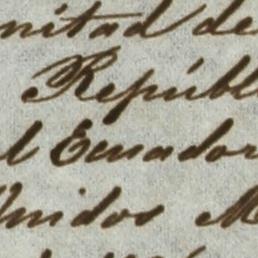 nitad de
Repúbl
l Ecuador
Unidos M